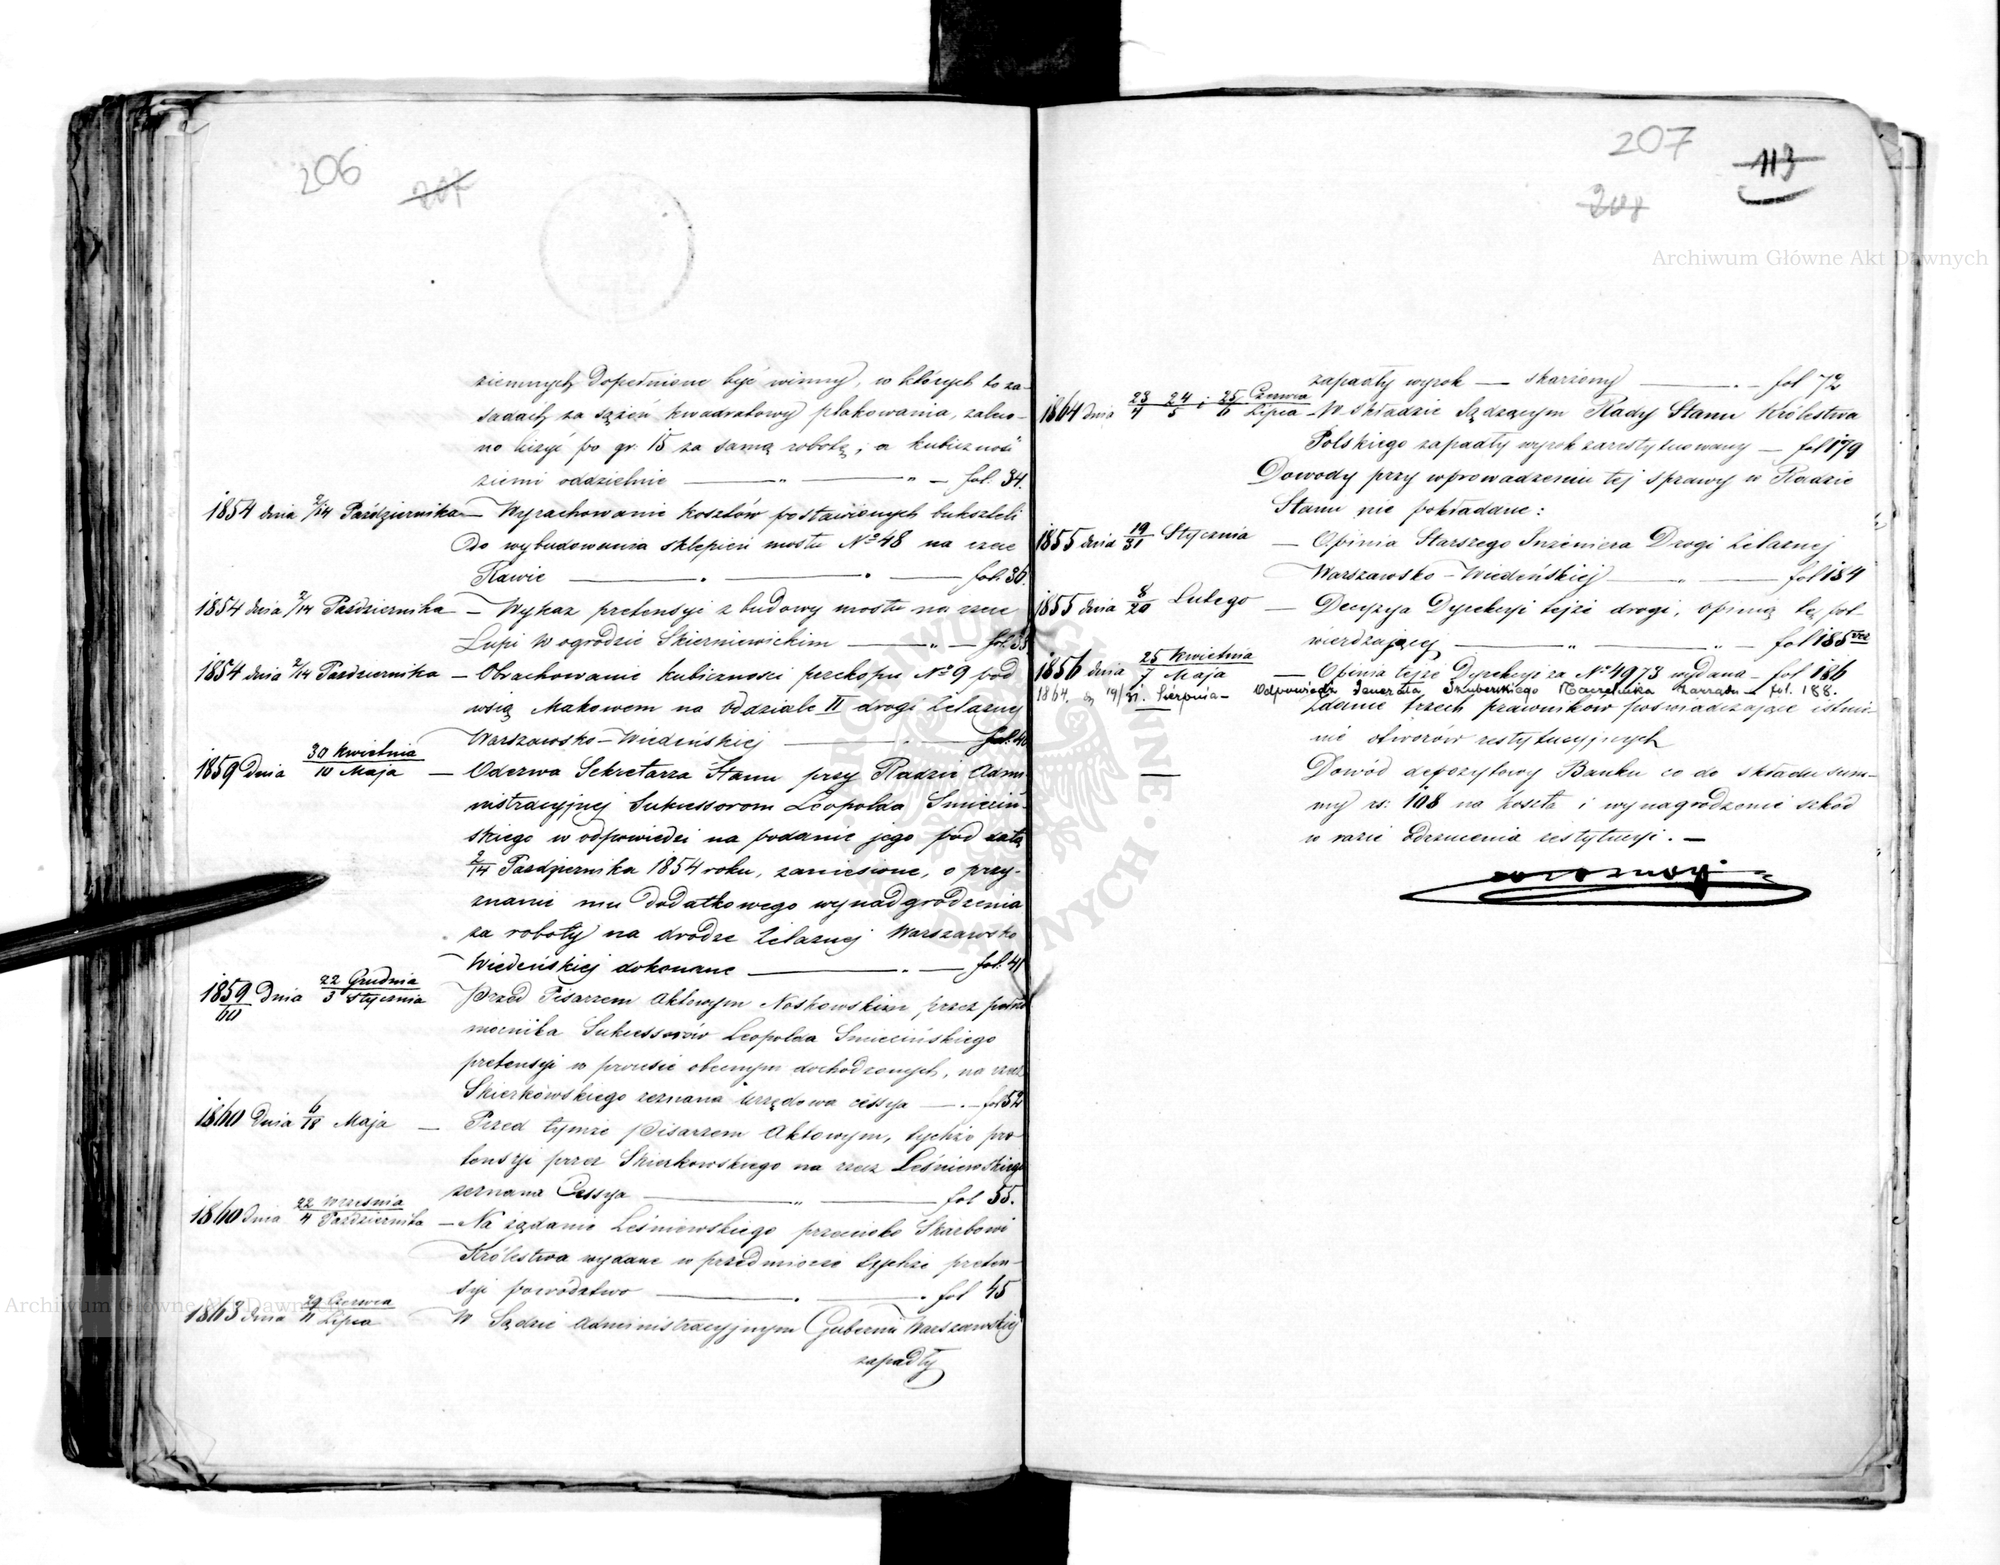 206
207
ziemnych dopełnione być winny, w których to za-
sadach za sążeń kwadratowy plakowania, zalico-
no liczyć po gr. 15 za samą robotę, a kubiczność
ziemi oddzielnie — " — " — fol. 34.
1854 dnia 2/14 Października — Wyrachowanie kosztów postawionych bukszteli
do wybudowania sklepień mostu No 48 na rzece
Rawie — fol. 36.
1854 dnia 2/14 Października — Wykaz pretensyi z budowy mostu na rzece
Łupi w ogrodzie Skierniewickim — " — fol. 38
1854 dnia 2/14 Października — Obrachowanie kubiczności przekopu No 9 pod
wsią Makowem na Oddziale II drogi Żelaznej
Warszawsko-Wiedeńskiej — fol. 40
1859 dnia 30 Kwietnia/10 Maja — Odezwa Sekretarza Stanu przy Radzie Admi-
nistracyjnej Sukcessorom Leopolda Smieciń-
skiego w odpowiedzi na podanie jego pod datą
2/14 Października 1854 roku, zaniesione, o przy-
znanie mu dodatkowego wynadgrodzenia
za roboty na drodze Żelaznej Warszawsko
Wiedeńskiej dokonane — " — fol. 41
1859/60 dnia 22 Grudnia/3 Stycznia Przed Pisarzem Aktowym Noskowskim przez pełno
mocnika Sukcessorów Leopolda Smiecińskiego
pretensyi w processie obecnym dochodzonych, na rzecz
Skierkowskiego zeznana urzędowa cessya — " — fol 52
1860 dnia 6/18 Maja — Przed tymże Pisarzem Aktowym, tychże pre-
tensyi przez Skierkowskiego na rzecz Leśniewskiego
zeznana Cessya — " — fol 55.
1860 dnia 22 Września/4 Października — Na żądanie Leśniewskiego przeciwko Skarbowi
Królestwa wydane w przedmiocie tychże preten-
syi powództwo — " — fol 45
1863 dnia 29 Czerwca/11 Lipca W Sądzie Administracyjnym Gubernii Warszawskiej
zapadły
207
113
208
zapadły wyrok — skarżony — " — fol 72
1864 dnia 23/4 24/5 i 25/6 Czerwca/Lipca — W składzie Sądzącym Rady Stanu Królestwa
Polskiego zapadły wyrok zarestytuowany — fol 179
Dowody przy wprowadzeniu tej sprawy w Radzie
Stanu nie pokładane:
1855 dnia 19/31 Stycznia — Opinia Starszego Inżeniera Drogi Żelaznej
Warszawsko-Wiedeńskiej — " — fol 184
1855 dnia 8/20 Lutego — Decyzya Dyrekcyi tejże drogi, opinią tę pot-
wierdzającej — " — " — fol 185
1856 dnia 25 Kwietnia/7 Maja — Opinia tejże Dyrekcyi za No 4973 wydana — fol 186
1864. 19/31. Sierpnia — Odpowiedź Jenerała Szuberskiego Naczelnika Zarządu — fol. 188.
Zdanie trzech prawników poświadczające istni-
nie otworów restytucyjnych
— Dowód depozytowy Banku co do składu sum-
my rs: 108 na koszta i wynagrodzenie szkód
w razie odrzucenia restytucyi. —
Archiwum Główne Akt Dawnych
Archiwum Główne Akt Dawnych